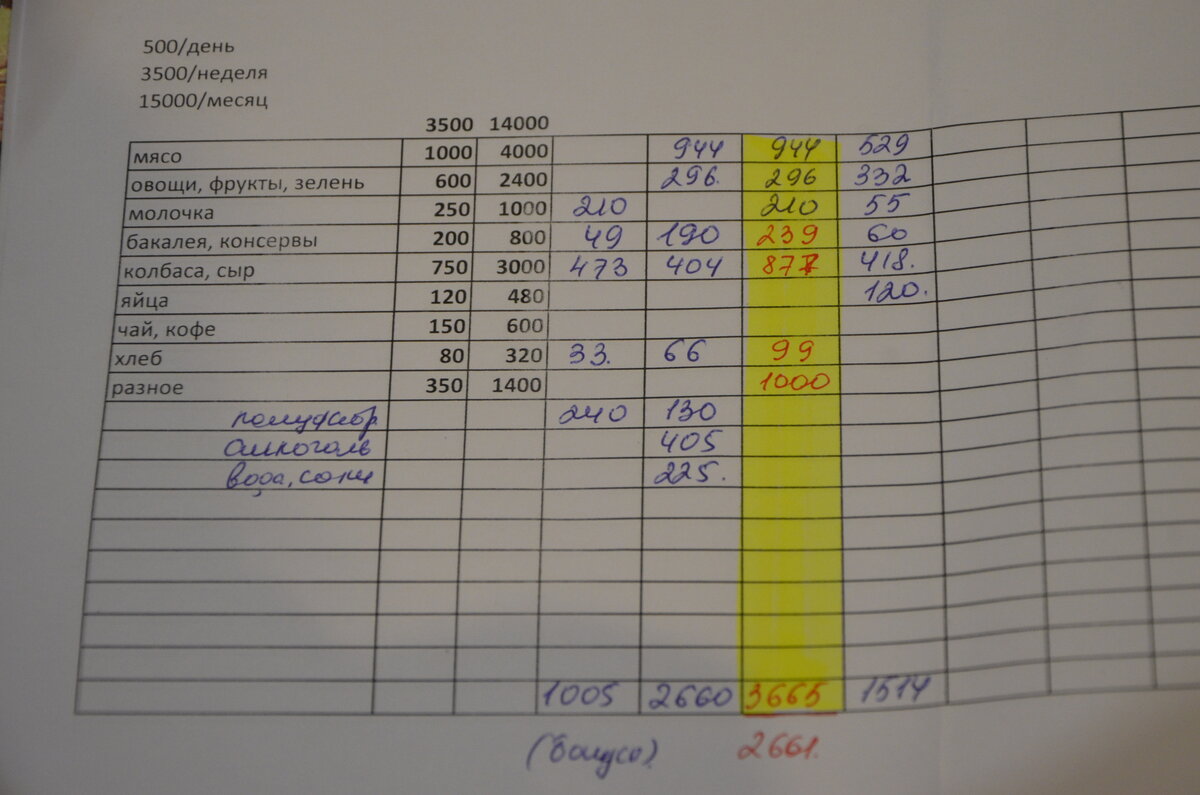 500/день
3500/неделя
15000/месяц
3500 14000
мясо 1000 4000 944 944 529
овощи, фрукты, зелень 600 2400 296. 296 332
молочка 250 1000 210 210 55
бакалея, консервы 200 800 49 190 239 60
колбаса, сыр 750 3000 473 404 877 418.
яйца 120 480 120.
чай, кофе 150 600
хлеб 80 320 33. 66 99
разное 350 1400 1000
240 130
алкоголь 405
вода, соки 225.
1005 2660 3665 1514
(бонусы) 2661.